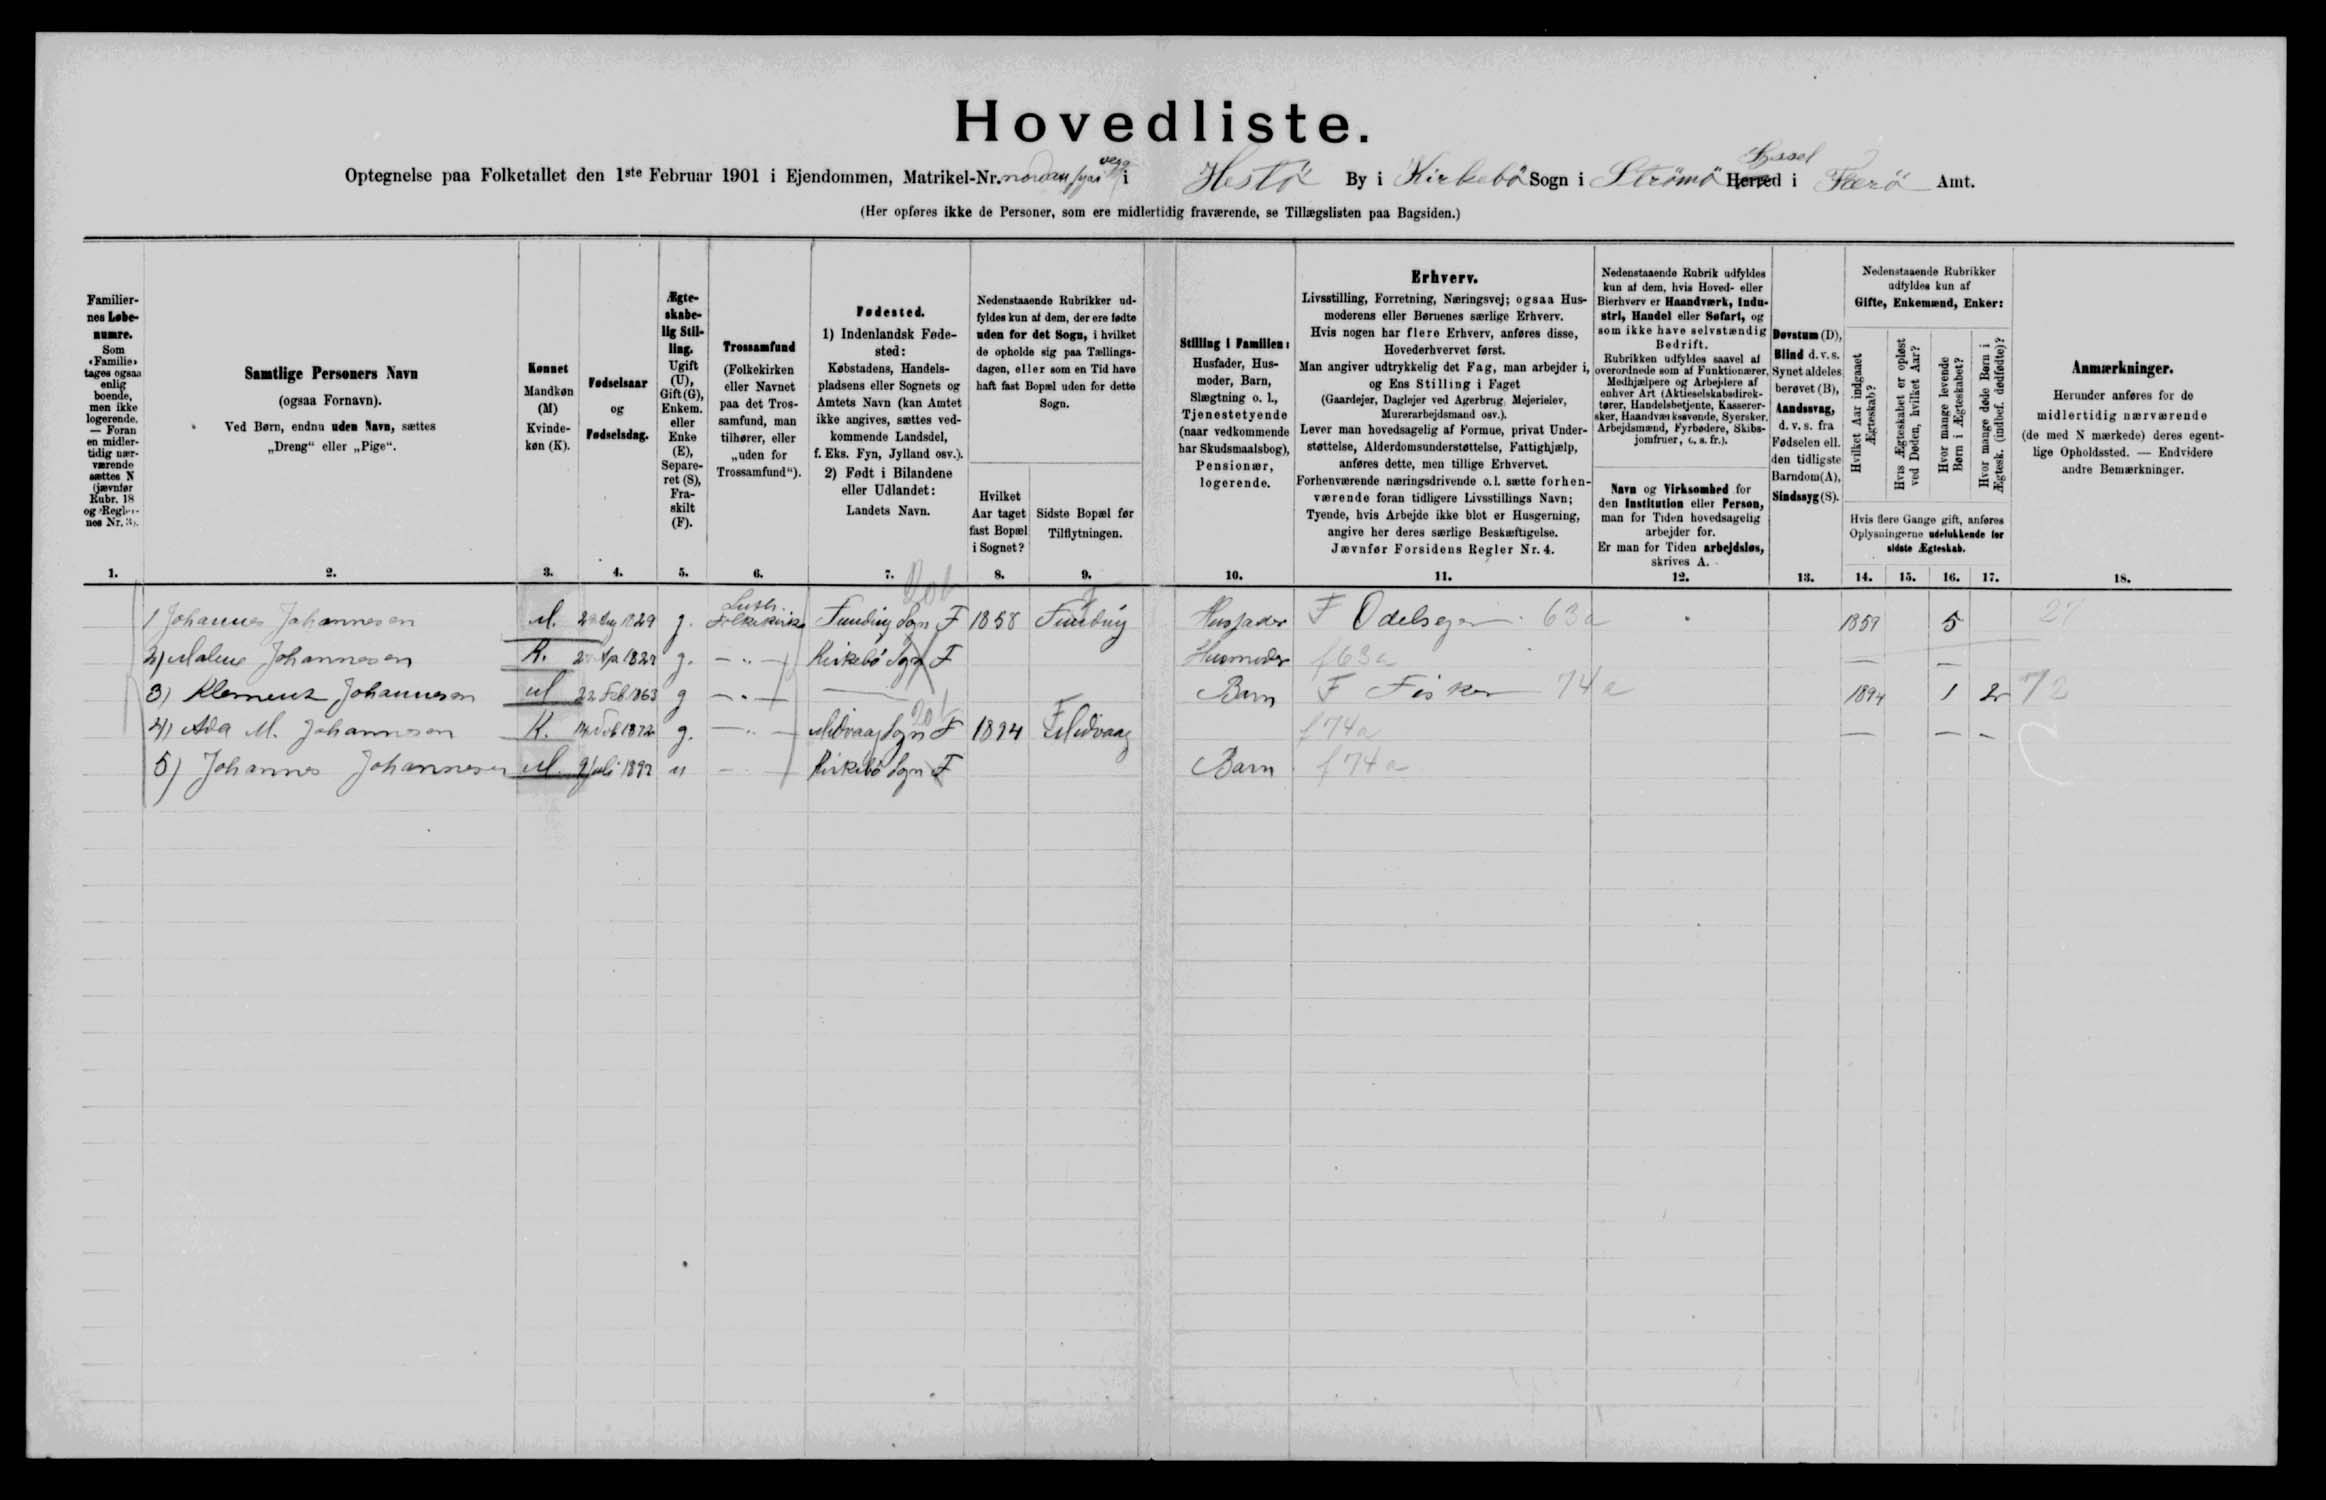 Hovedliste.
Optegnelse paa Folketallet den 1ste Februar 1901 i Ejendommen, Matrikel-Nr. i Hestö By i Kirkebö Sogn i Strömö Herred Syssel i Færö Amt.
(Her opføres ikke de Personer, som ere midlertidig fraværende, se Tillægslisten paa Bagsiden.)
Familiernes Løbenumre.
Som «Familie» tages ogsaa enlig boende, men ikke logerende. — Foran en midlertidig nærværende sættes N (jævnfør Rubr. 18 og Reglernes Nr. 3).
Samtlige Personers Navn
(ogsaa Fornavn).
Ved Børn, endnu uden Navn, sættes
„Dreng“ eller „Pige“.
Kønnet
Mandkøn (M)
Kvindekøn (K).
Fødselsaar
og
Fødselsdag.
Ægteskabelig Stilling.
Ugift (U), Gift (G), Enkem. eller Enke (E), Separeret (S), Fraskilt (F).
Trossamfund
(Folkekirken eller Navnet paa det Trossamfund, man tilhører, eller „uden for Trossamfund“).
Fødested.
1) Indenlandsk Fødested:
Købstadens, Handelspladsens eller Sognets og Amtets Navn (kan Amtet ikke angives, sættes vedkommende Landsdel, f. Eks. Fyn, Jylland osv.).
2) Født i Bilandene eller Udlandet:
Landets Navn.
Nedenstaaende Rubrikker udfyldes kun af dem, der ere fødte uden for det Sogn, i hvilket de opholde sig paa Tællingsdagen, eller som en Tid have haft fast Bopæl uden for dette Sogn.
Hvilket Aar taget fast Bopæl i Sognet?
Sidste Bopæl før Tilflytningen.
Stilling i Familien:
Husfader, Husmoder, Barn, Slægtning o. l., Tjenestetyende (naar vedkommende har Skudsmaalsbog), Pensionær, logerende.
Erhverv.
Livsstilling, Forretning, Næringsvej; ogsaa Husmoderens eller Børnenes særlige Erhverv.
Hvis nogen har flere Erhverv, anføres disse, Hovederhvervet først.
Man angiver udtrykkelig det Fag, man arbejder i, og Ens Stilling i Faget
(Gaardejer, Daglejer ved Agerbrug, Mejerielev, Murerarbejdsmand osv.).
Lever man hovedsagelig af Formue, privat Understøttelse, Alderdomsunderstøttelse, Fattighjælp, anføres dette, men tillige Erhvervet.
Forhenværende næringsdrivende o. l. sætte forhenværende foran tidligere Livsstillings Navn;
Tyende, hvis Arbejde ikke blot er Husgerning, angive her deres særlige Beskæftigelse.
Jævnfør Forsidens Regler Nr. 4.
Nedenstaaende Rubrik udfyldes kun af dem, hvis Hoved- eller Bierhverv er Haandværk, Industri, Handel eller Søfart, og som ikke have selvstændig Bedrift.
Rubrikken udfyldes saavel af overordnede som af Funktionærer, Medhjælpere og Arbejdere af enhver Art (Aktieselskabsdirektører, Handelsbetjente, Kassere­rsker, Haandværksøvende, Syersker, Arbejdsmænd, Fyrbødere, Skibsjomfruer, o. s. fr.).
Navn og Virksomhed for den Institution eller Person, man for Tiden hovedsagelig arbejder for.
Er man for Tiden arbejdsløs, skrives A.
Døvstum (D), Blind d. v. s. Synet aldeles berøvet (B), Aandssvag, d. v. s. fra Fødselen ell. den tidligste Barndom (A), Sindssyg (S).
Nedenstaaende Rubrikker udfyldes kun af
Gifte, Enkemænd, Enker:
Hvilket Aar indgaaet Ægteskab?
Hvis Ægteskabet er opløst ved Døden, hvilket Aar?
Hvor mange levende Børn i Ægteskabet?
Hvor mange døde Børn i Ægtesk. (indbef. dødfødte)?
Hvis flere Gange gift, anføres Oplysningerne udelukkende for sidste Ægteskab.
Anmærkninger.
Herunder anføres for de midlertidig nærværende (de med N mærkede) deres egentlige Opholdssted. — Endvidere andre Bemærkninger.
1. 2. 3. 4. 5. 6. 7. 8. 9. 10. 11. 12. 13. 14. 15. 16. 17. 18.
1 Johannes Johannesen M. 1829 g. Luth. Folkekirke Funding Sogn F 1858 Funding Husfader F Odelsejer 63a 5 27
2) Malene Johannesen K. g. — " — Kirkebö Sogn F Husmoder f 63a — —
3) Klemens Johannesen M 22 Feb 1863 g — " — — Barn F Fisker 74a 1894 1 2 72
4) Ada M. Johannesen K. 1872 g. — " — Midvaag Sogn F 1894 Midvaag f 74a — — –
5) Johannes Johannesen M 9 Juli 1897 u — " — Kirkebö Sogn F Barn f 74a